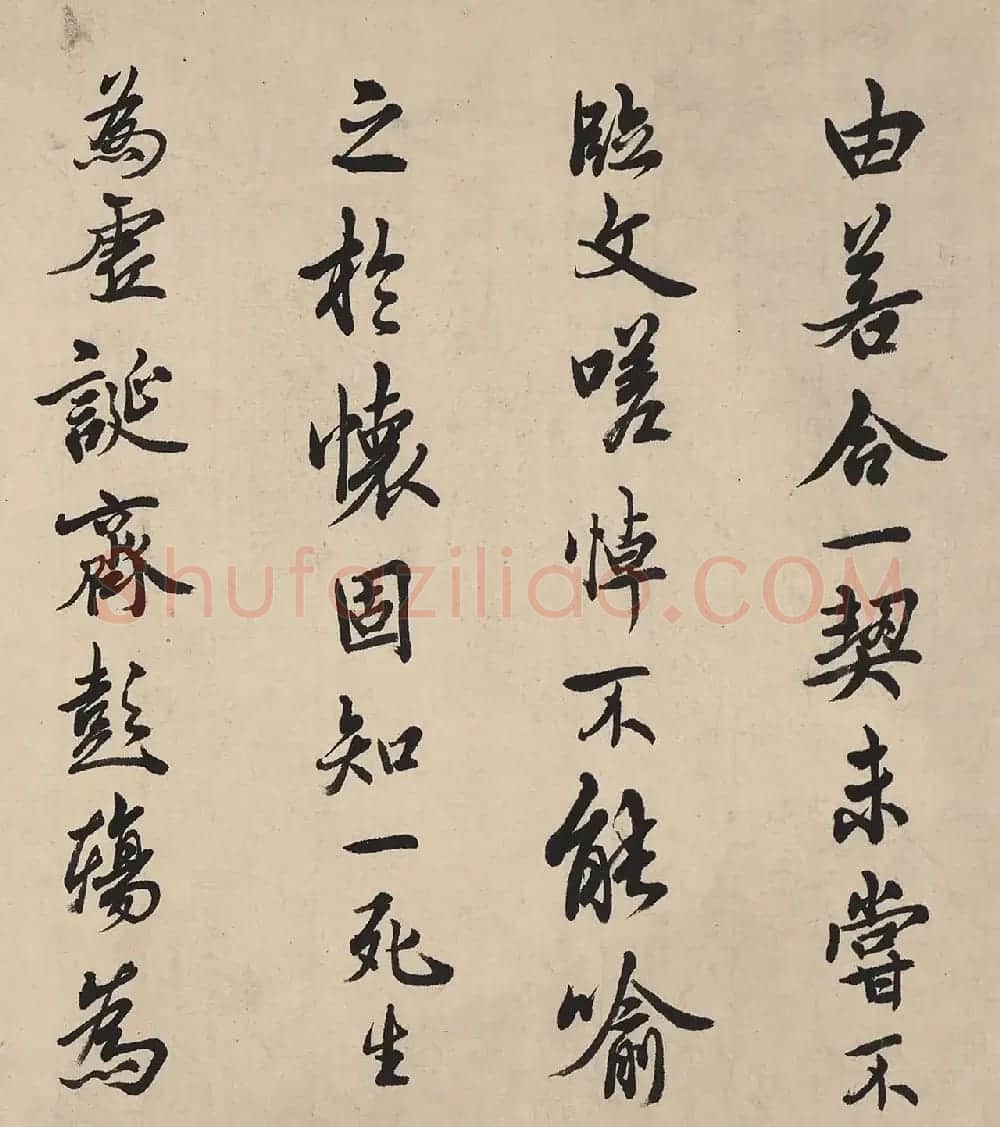 由若合一契未嘗不
臨文嗟悼不能喻
之於懷固知一死生
為虛誕齊彭殤為
shufaziliao.COM